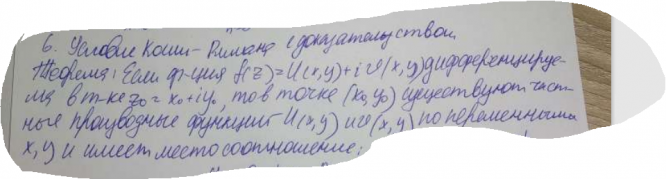 6. Условие Коши-Римана с доказательством.
Теорема: Если ф-ция f(z)=U(x,y)+iv(x,y) дифференцируе-
ма в т-ке z₀=x₀+iy₀, то в точке (x₀,y₀) существуют част-
ные производные функций U(x,y) и v(x,y) по переменным
x,y и имеет место соотношение: